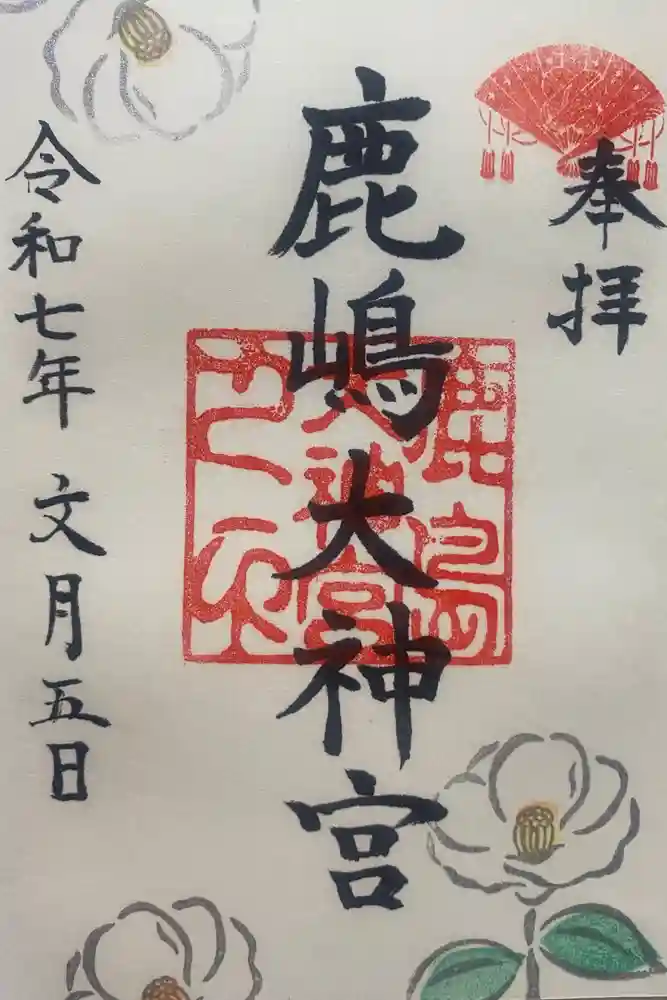 奉拝
鹿嶋大神宮
鹿島
大神宮
之印
令和七年 文月五日